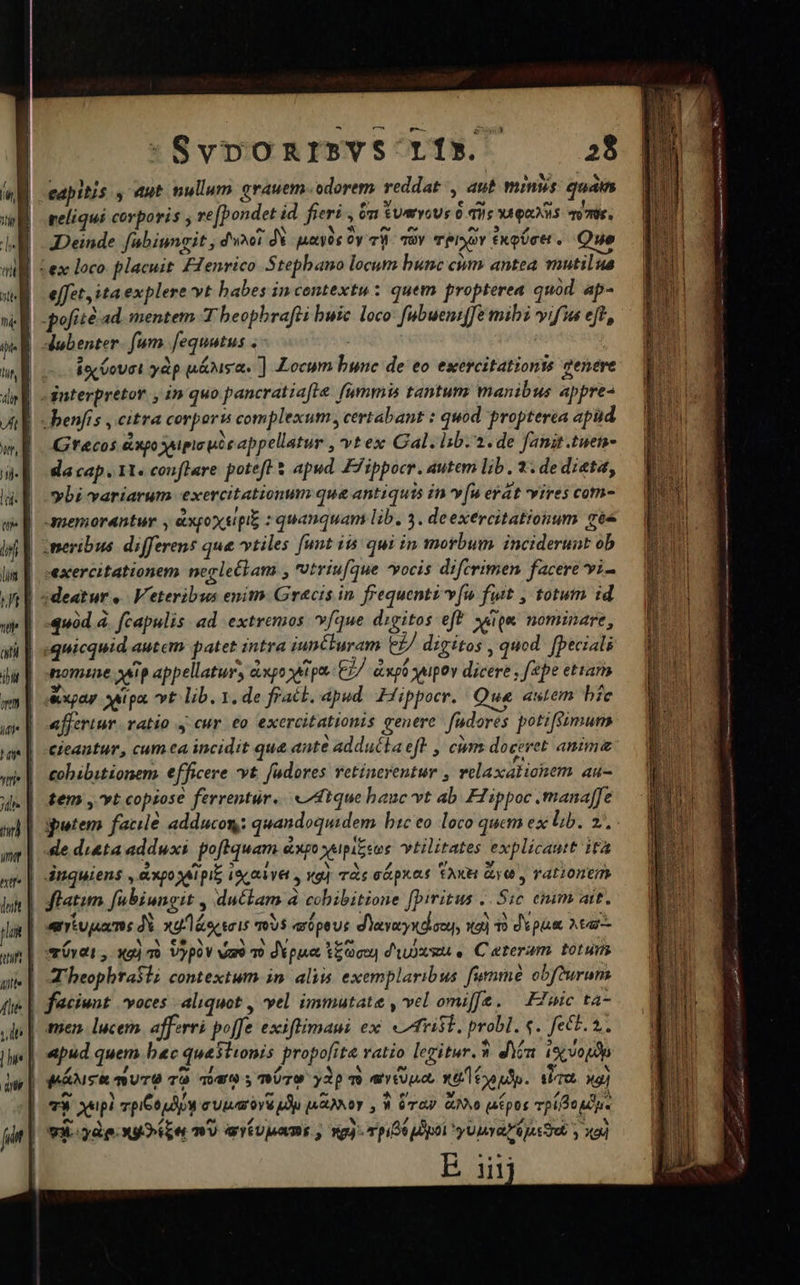 SVDORIBVS LIB. 28
capitis, aut nullum grauem odorem reddat, aut minùs quàm
reliqui corporis, respondet id fieri, ὅτι ἔυπνους ὁ τῆς κεφαλῆς τόπος.
Deinde subiungit, δηλοῖ δὲ μανὸς ὂν τῇ τῶν τριχῶν ἐκφύσει. Que
ex loco placuit Henrico Stephano locum hunc cùm antea mutilus
esset, ita explere vt habes in contextu: quem propterea quòd ap-
positè ad mentem Theophrasti huic loco subuenisse mihi visus est,
lubenter sum sequutus.
ἰσχύουσι γὰρ μάλιστα.] Locum hunc de eo exercitationis genere
interpretor, in quo pancratiastæ summis tantum manibus appre-
hensis, citra corporis complexum, certabant: quod propterea apud
Græcos ἀκροχειρισμὸς appellatur, vt ex Gal. lib. 2. de sanit. tuen-
da cap. 11. constare potest: apud Hippocr. autem lib. 2. de diæta,
vbi variarum exercitationum quæ antiquis in vsu erāt vires com-
memorantur, ἀκροχειρίξ: quanquam lib. 3. de exercitationum ge-
neribus differens quæ vtiles sunt iis qui in morbum inciderunt ob
exercitationem neglectam, vtriusque vocis discrimen facere vi-
deatur. Veteribus enim Græcis in frequenti vsu fuit, totum id
quòd à scapulis ad extremos vsque digitos est χεῖρα nominare,
quicquid autem patet intra iuncturam & digitos, quod speciali
nomine χεὶρ appellatur, ἀκροχεῖρα & ἀκρόχειρον dicere, sæpe etiam
ἄκραν χεῖρα vt lib. 1. de fract. apud Hippocr. Quæ autem hîc
affertur ratio, cur eo exercitationis genere sudores potissimum
cieantur, cum ea incidit quæ antè adducta est, cùm doceret animæ
cohibitionem efficere vt sudores retinerentur, relaxationem au-
tem, vt copiosè ferrentur. Atque hanc vt ab Hippoc. manasse
putem facilè adducor: quandoquidem hic eo loco quem ex lib. 2.
de diæta adduxi postquam ἀκροχειρίξεως vtilitates explicauit ita
inquiens, ἀκροχείριξ ἰσχαίνει, καὶ τὰς σάρκας ἕλκει ἄνω, rationem
statim subiungit, ductam à cohibitione spiritus. Sic enim ait.
πνεύματος δὲ κατάσχεσις τοὺς πόρους διαναγκάσαι, καὶ τὸ δέρμα λεπ-
τῦναι, καὶ τὸ ὑγρὸν ὑπὸ τὸ δέρμα ἐξῶσαι δύναται. Cæterum totum
Theophrasti contextum in aliis exemplaribus summè obscurum
faciunt voces aliquot, vel immutatæ, vel omissæ. Huic ta-
men lucem afferri posse existimaui ex Arist. probl. 5. sect. 2.
apud quem hæc quæstionis propositæ ratio legitur. ἢ διότι ἰσχύομεν
μάλιστα τούτῳ τῷ τόπῳ; τούτῳ γὰρ τὸ πνεῦμα κατέχομεν. εἶτα καὶ
τῇ χειρὶ τριβομένῃ συμπονοῦμεν μᾶλλον, ἢ ὅταν ἄλλο μέρος τρίβομεν.
τῇ γὰρ καθέξει τοῦ πνεύματος, καὶ τριβόμενοι γυμναζόμεθα, καὶ
E iiij